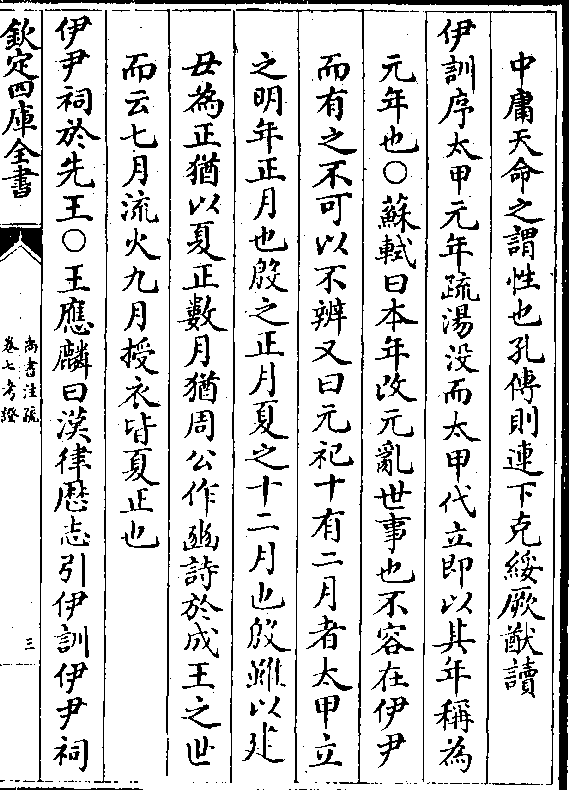 中庸天命之謂性也孔傳則連下克綏厥猷讀
伊訓序太甲元年疏湯沒而太甲代立即以其年稱為
元年也○蘇軾曰本年改元亂世事也不容在伊尹
而有之不可以不辨又曰元祀十有二月者太甲立
之明年正月也殷之正月夏之十二月也殷雖以建
丑為正猶以夏正數月猶周公作豳詩於成王之世
而云七月流火九月授衣皆夏正也
伊尹祠於先王○王應麟曰漢律歷志引伊訓伊尹祠
欽定四庫全書
尚書注疏
卷七考證
三